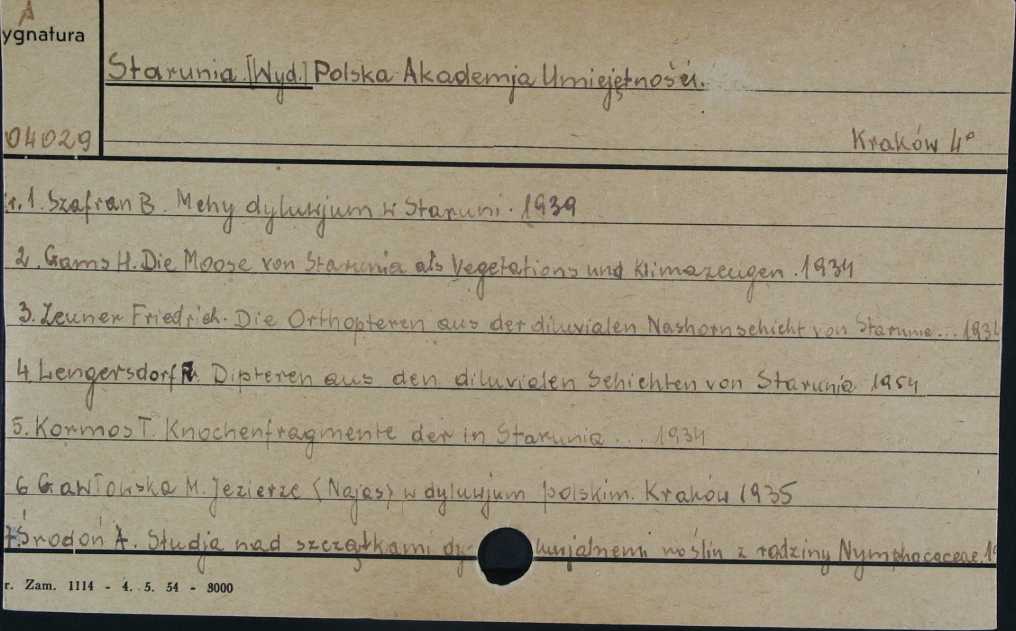 A
ygnatura
Starunia [Wyd.] Polska Akademja Umiejętności.
04029
Kraków 4°
r. 1. Szafran B. Mchy dyluwjum w Staruni. 1939
2. Gams H. Die Moose von Starunia als Vegetations und Klimazeugen. 1934
3. Zeuner Friedrich. Die Orthopteren aus der diluvialen Nashornschicht von Starunia... 1934
4. Lengersdorf F. Dipteren aus den diluvialen Schichten von Starunia 1954
5. Kormos T. Knochenfragmente der in Starunia ... 1934
6 Gawłowska M. Jezierze (Najas) w dyluwjum polskim. Kraków 1935
7. Środoń A. Studja nad szczątkami roślin z rodziny Nymphaceaceae.
r. Zam. 1114 - 4. 5. 54 - 3000